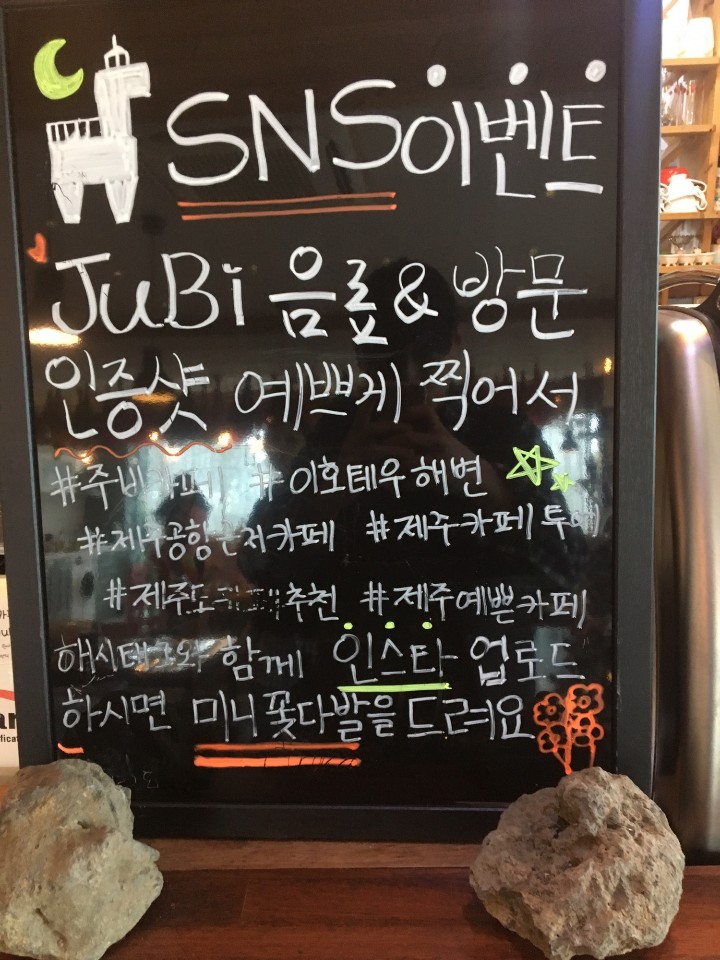 SNS이벤트
JuBi 음료 & 방문
인증샷 예쁘게 찍어서
#주비카페 #이호테우해변
#제주공항근처카페 #제주카페투어
#제주도카페추천 #제주예쁜카페
해시태그와 함께 인스타 업로드
하시면 미니꽃다발을 드려요